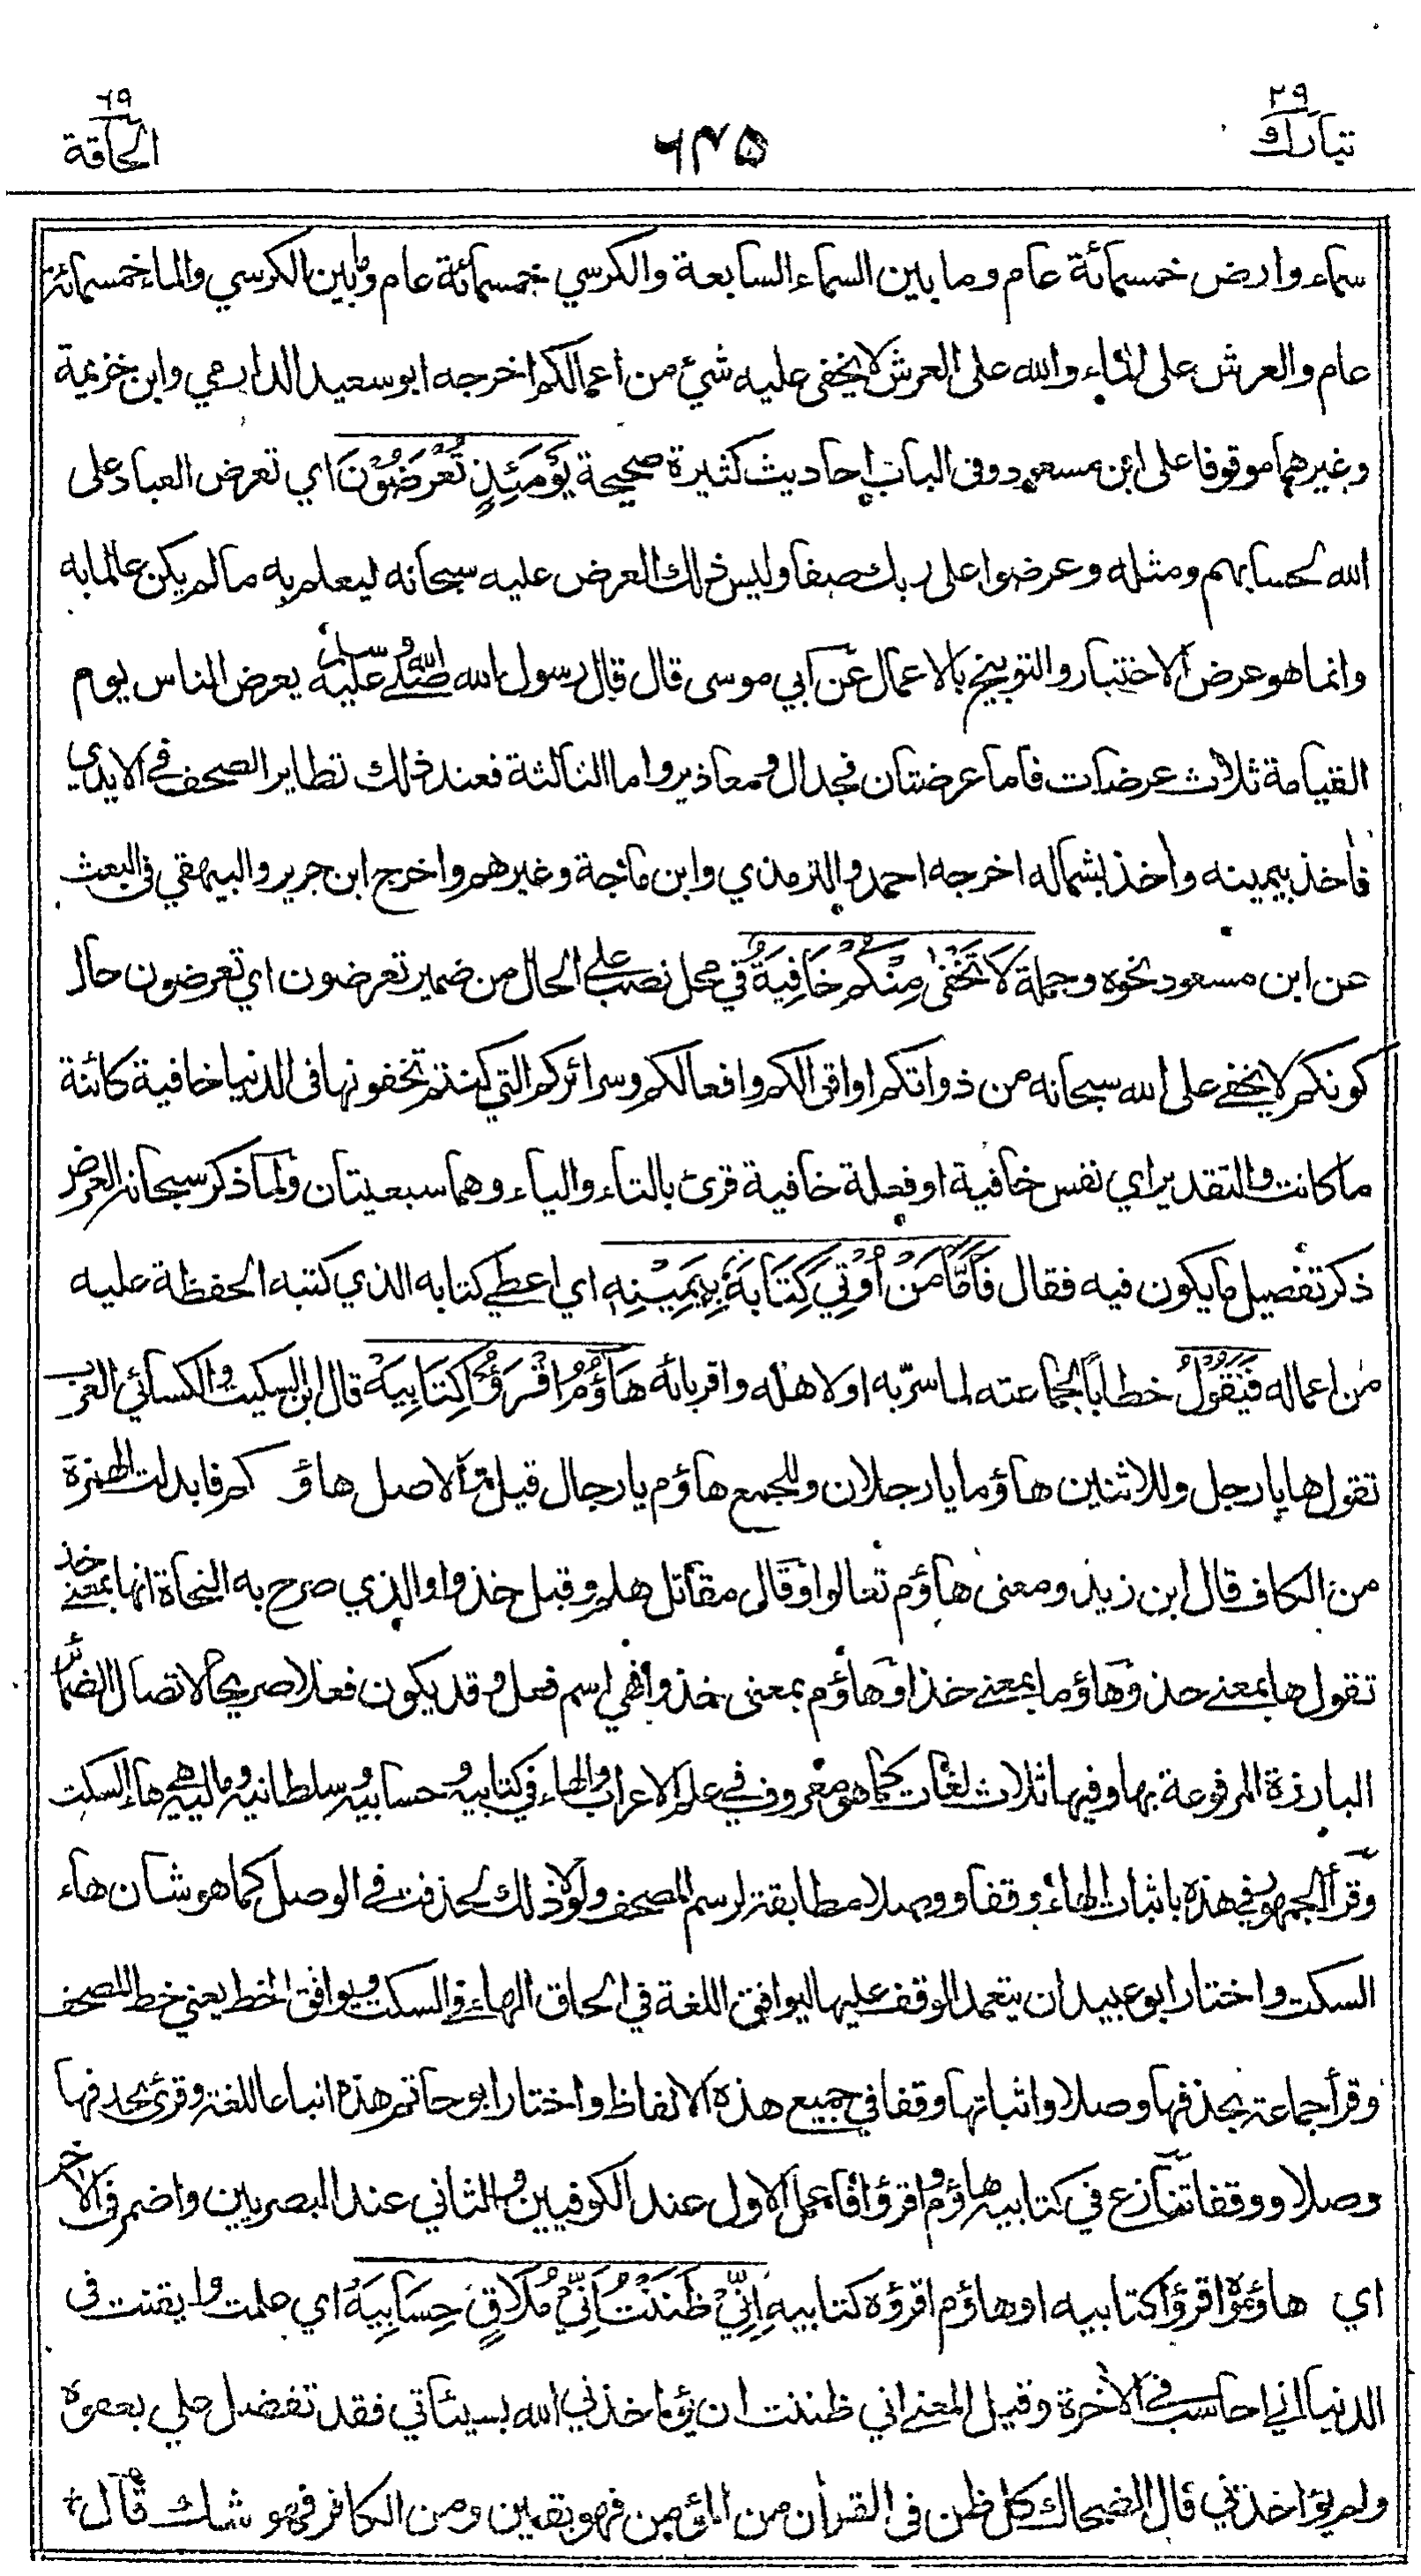 ٢٩
تبارك
٦٤٥
٦٩
الحاقة
سماء وارض خمسمائة عام وما بين السماء السابعة والكرسي خمسمائة عام وما بين الكرسي والماء خمسمائة
عام والعرش على الماء والله على العرش لا يخفى عليه شيء من اعمالكم اخرجه ابو سعيد الدارمي وابن خزيمة
وغيرهما موقوفا على ابن مسعود وفي الباب احاديث كثيرة صحيحة يَوْمَئِذٍ تُعْرَضُوْنَ اي تعرض العباد على
الله لحسابهم ومثله وعرضوا على ربك صفا وليس ذلك العرض عليه سبحانه ليعلم به ما لم يكن عالما به
وانما هو عرض الاختبار والتوبيخ بالاعمال عن ابي موسى قال قال رسول الله صلى الله عليه وسلم يعرض الناس يوم
القيامة ثلاث عرضات فاما عرضتان فجدال ومعاذير واما الثالثة فعند ذلك تطاير الصحف في الايدي
فآخذ بيمينه وآخذ بشماله اخرجه احمد والترمذي وابن ماجة وغيرهم واخرج ابن جرير والبيهقي في البعث
عن ابن مسعود نحوه وجملة لَا تَخْفٰى مِنْكُمْ خَافِيَةٌ في محل نصب على الحال من ضمير تعرضون اي تعرضون حال
كونكم لا يخفى على الله سبحانه من ذواتكم او اقوالكم وافعالكم وسرائركم التي كنتم تخفونها في الدنيا خافية كائنة
ما كانت والتقدير اي نفس خافية او فعلة خافية قرئ بالتاء والياء وهما سبعيتان ولما ذكر سبحانه العرض
ذكر تفصيل ما يكون فيه فقال فَاَمَّا مَنْ اُوْتِيَ كِتَابَهُ بِيَمِيْنِهِ اي اعطي كتابه الذي كتبه الحفظة عليه
من اعماله فَيَقُوْلُ خطاباً لجماعته لما سرّ به او لاهله واقربائه هَاؤُمُ اقْرَؤُا كِتَابِيَهْ قال ابن السكيت والكسائي العرب
تقول ها يا رجل وللاثنين هاؤما يا رجلان وللجمع هاؤم يا رجال قيل والاصل هاؤ كم فابدلت الهمزة
من الكاف قال ابن زيد ومعنى هاؤم تعالوا وقال مقاتل هلم وقيل خذوا والذي صرح به النحاة انها بمعنى خذ
تقول ها بمعنى خذ وهاؤما بمعنى خذا وهاؤم بمعنى خذوا فهي اسم فعل وقد يكون فعلا صريحا لاتصال الضمائر
البارزة المرفوعة بها وفيها ثلاث لغات كما هو معروف في علم الاعراب والهاء في كتابيه وحسابيه وسلطانيه وماليه هي هاء السكت
وقرأ الجمهور في هذه باثبات الهاء وقفا ووصلا مطابقة لرسم المصحف ولولا ذلك لحذفت في الوصل كما هو شان هاء
السكت واختار ابو عبيد ان يتعمد الوقف عليها ليوافق اللغة في الحاق الهاء في السكت ويوافق الخط يعني خط المصحف
وقرأ جماعة بحذفها وصلا واثباتها وقفا في جميع هذه الالفاظ واختار ابو حاتم هذه اتباعا للغة وقرئ بحذفها
وصلا ووقفا تنازع في كتابيه هاؤم واقرؤا فاعمل الاول عند الكوفيين والثاني عند البصريين واضمر في الآخر
اي هاؤموه اقرؤا كتابيه او هاؤم اقرؤه كتابيه اِنِّيْ ظَنَنْتُ اَنِّيْ مُلَاقٍ حِسَابِيَهْ اي علمت وايقنت في
الدنيا اني احاسب في الآخرة وقيل المعنى اني ظننت ان يؤاخذني الله بسيئاتي فقد تفضل علي بعفوه
ولم يؤاخذني قال الضحاك كل ظن في القرآن من المؤمن فهو يقين ومن الكافر فهو شك قال